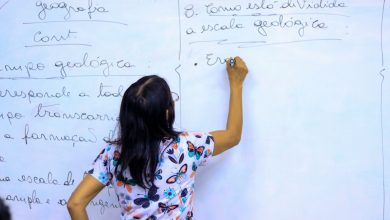 geografia
cont.
tempo geológico:
corresponde a todo
tempo transcorri
a formação d
escala de
8. Como está dividida
a escala geológica:
• Era